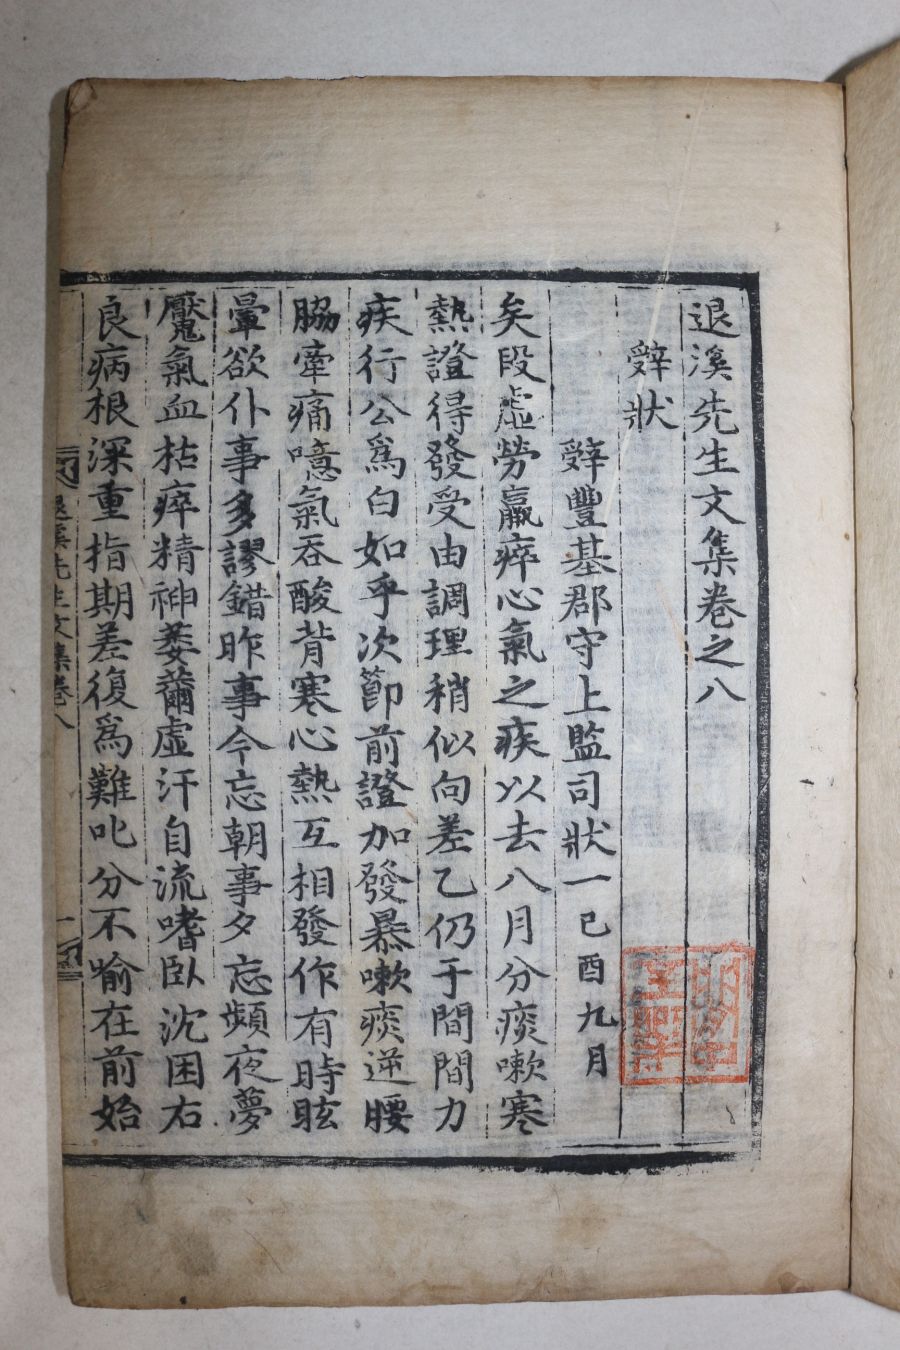 退溪先生文集卷之八
辭狀
辭豐基郡守上監司狀一己酉九月
矣段虛勞羸瘁心氣之疾以去八月分痰嗽寒
熱證得發受由調理稍似向差乙仍于間間力
疾行公爲白如乎次節前證加發暴嗽痰逆腰
脇牽痛噫氣吞酸背寒心熱互相發作有時眩
暈欲仆事多謬錯昨事今忘朝事夕忘頻夜夢
魘氣血枯瘁精神萎薾虛汗自流嗜臥沈困右
良病根深重指期差復爲難叱分不喩在前始
退溪先生文集卷八
一